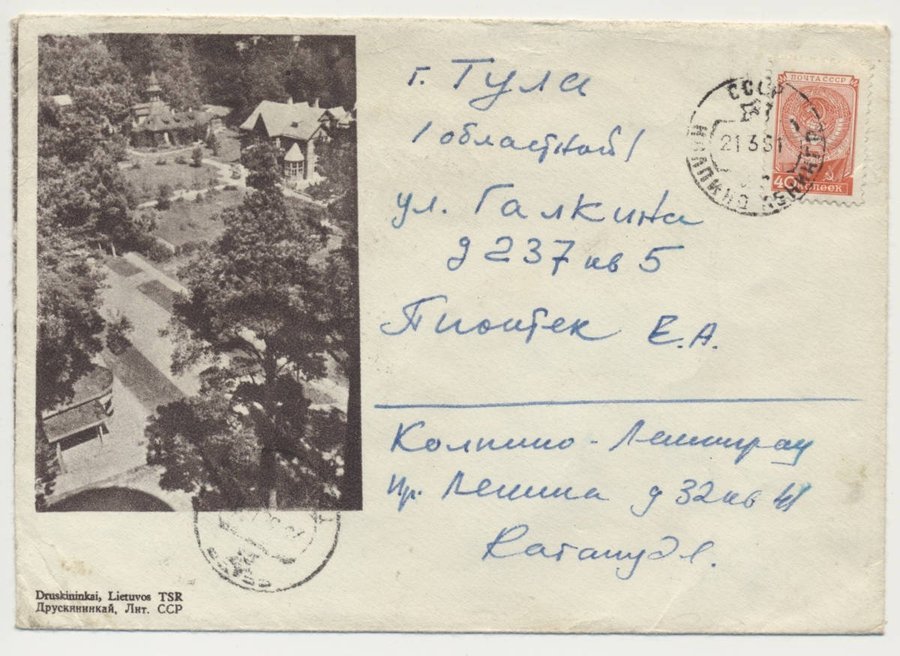 г. Тула
/областной/
ул. Галкина
д 237 кв 5
Пионтек Е.А.
Колпино - Ленинград
пр. Ленина д 32 кв 41
ПОЧТА СССР
40 копеек
СССР
21 3 61
Druskininkai, Lietuvos TSR
Друскининкай, Лит. ССР